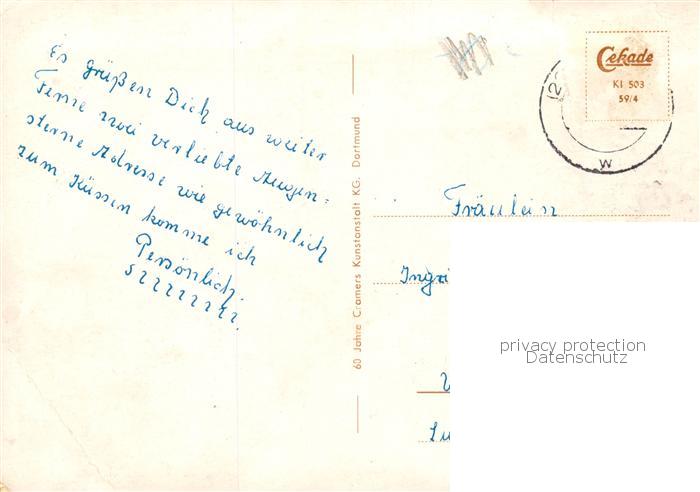 Es grüßen Dich aus weiter
Ferne zwei verliebte Augen=
sterne Adresse wie gewöhnlich
zum Küssen komme ich
Persönlich.
60 Jahre Cramers Kunstanstalt KG. Dortmund
Cekade
KI 503
59/4
W
Fräulein
Ingri
privacy protection
Datenschutz